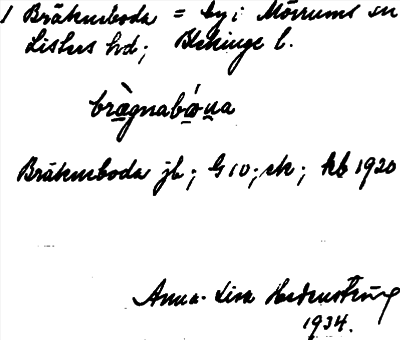 1 Bräkneboda = by i Mörrums sn
Listers hd; Blekinge l.
bràgnabóna
Bräkneboda jb; G 10; sk; kb 1920
Anna-Lisa
1934.